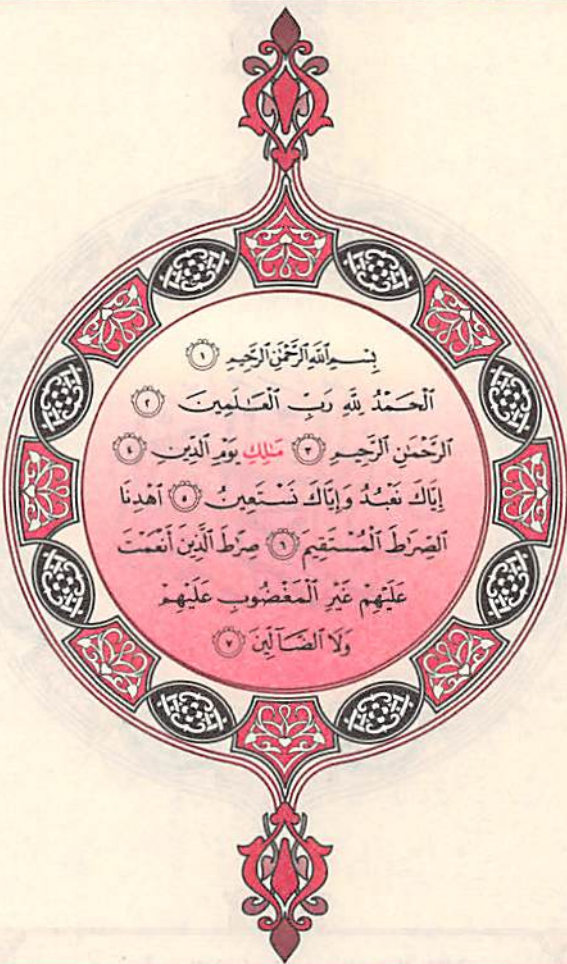 بِسْمِ ٱللَّهِ ٱلرَّحْمَٰنِ ٱلرَّحِيمِ ١
ٱلْحَمْدُ لِلَّهِ رَبِّ ٱلْعَٰلَمِينَ ٢
ٱلرَّحْمَٰنِ ٱلرَّحِيمِ ٣ مَٰلِكِ يَوْمِ ٱلدِّينِ ٤
إِيَّاكَ نَعْبُدُ وَإِيَّاكَ نَسْتَعِينُ ٥ ٱهْدِنَا
ٱلصِّرَٰطَ ٱلْمُسْتَقِيمَ ٦ صِرَٰطَ ٱلَّذِينَ أَنْعَمْتَ
عَلَيْهِمْ غَيْرِ ٱلْمَغْضُوبِ عَلَيْهِمْ
وَلَا ٱلضَّآلِّينَ ٧